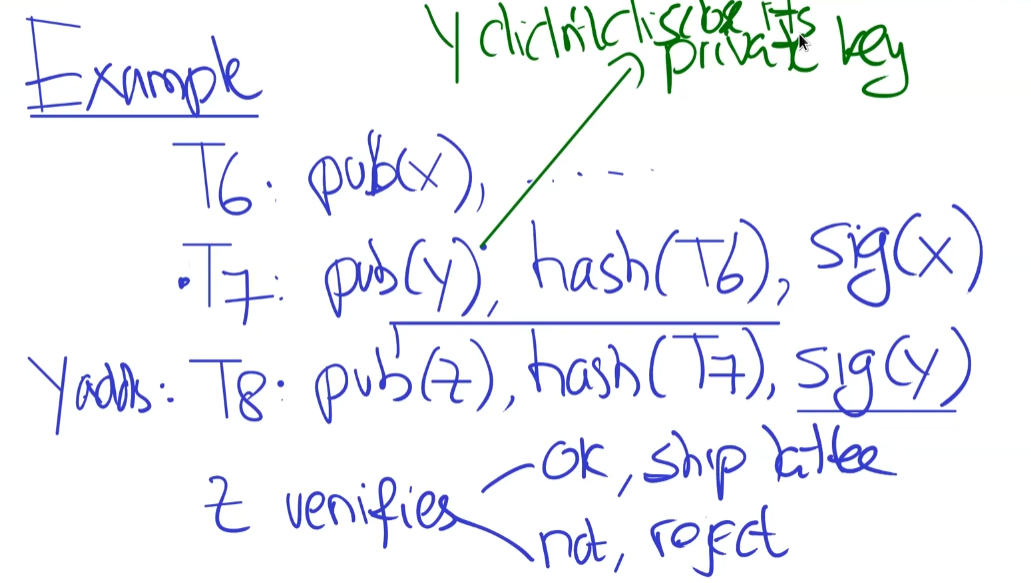 Y didn't disclose its
private key
Example
T6: pub(x), ....
T7: pub(y), hash(T6), sig(x)
Y adds: T8: pub(z), hash(T7), sig(y)
z verifies
ok, ship lattee
not, reject